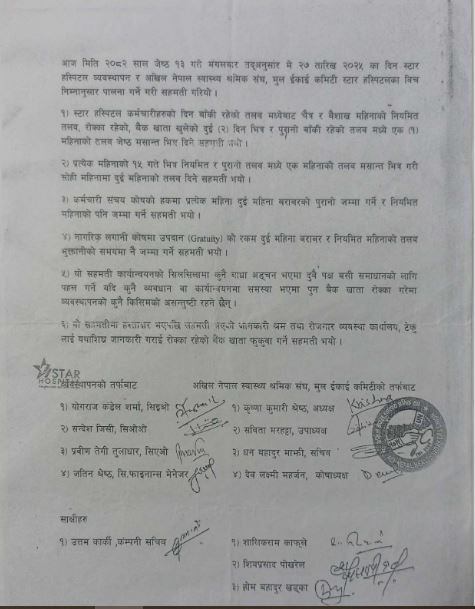 आज मिति २०८२ साल जेष्ठ १३ गते मंगलबार तद्अनुसार मे २७ तारिख २०२५ का दिन स्टार
हस्पिटल व्यवस्थापन र अखिल नेपाल स्वास्थ्य श्रमिक संघ, मुल ईकाई कमिटी स्टार हस्पिटलका विच
निम्नानुसार पालना गर्ने गरी सहमती गरियो ।
१) स्टार हस्पिटल कर्मचारीहरुको दिन बाँकी रहेको तलब मध्येबाट चैत्र र बैशाख महिनाको नियमित
तलव, रोक्का रहेको, बैंक खाता खुलेको दुई (२) दिन भित्र र पुरानो बाँकी रहेको तलब मध्ये एक (१)
महिनाको तलब जेष्ठ मसान्त भित्र दिने सहमती भयो ।
२) प्रत्येक महिनाको १५ गते भित्र नियमित र पुरानो तलब मध्ये एक महिनाको तलब मसान्त भित्र गरी
सोही महिनामा दुई महिनाको तलब दिने सहमती भयो ।
३) कर्मचारी संचय कोषको हकमा प्रत्येक महिना दुई महिना बराबरको पुरानो जम्मा गर्ने र नियमित
महिनाको पनि जम्मा गर्ने सहमती भयो ।
४) नागरिक लगानी कोषमा उपदान (Gratuity) को रकम दुई महिना बराबर र नियमित महिनाको तलब
भुक्तानीको समयमा नै जम्मा गर्ने सहमती भयो ।
५) यो सहमती कार्यान्वयनको सिलसिलामा कुनै बाधा अड्चन भएमा दुबै पक्ष बसी समाधानको लागि
पहल गर्ने यदि कुनै व्यवधान वा कार्यान्वयनमा समस्या भएमा पुन बैंक खाता रोक्का गरेमा
व्यवस्थापनको कुनै किसिमको असन्तुष्टी रहने छैन् ।
६) यो सहमतीमा हस्ताक्षर भएपछि सहमती भएको जानकारी श्रम तथा रोजगार व्यवस्था कार्यालय, टेकु
लाई यथाशिघ्र जानकारी गराई रोक्का रहेको बैंक खाता फुकुवा गर्ने सहमती भयो ।
STAR
HOSPITAL
व्यवस्थापनको तर्फबाट
अखिल नेपाल स्वास्थ्य श्रमिक संघ, मुल ईकाई कमिटीको तर्फबाट
१) योगराज कंडेल शर्मा, सिइओ
१) कृष्णा कुमारी श्रेष्ठ, अध्यक्ष
Krishna
२) सन्देश जिसी, सिओओ
२) सविता मरहट्टा, उपाध्यक्ष
३) प्रवीण तेगी तुलाधर, सिएओ
३) धन बहादुर माझी, सचिव
४) जतिन श्रेष्ठ, सि.फाइनान्स मेनेजर
४) देव लक्ष्मी महर्जन, कोषाध्यक्ष
साक्षीहरु
१) उत्तम कार्की ,कम्पनी सचिव
१) शालिकराम काफ्ले
२) शिवप्रसाद पोखरेल
३) होम बहादुर खड्का